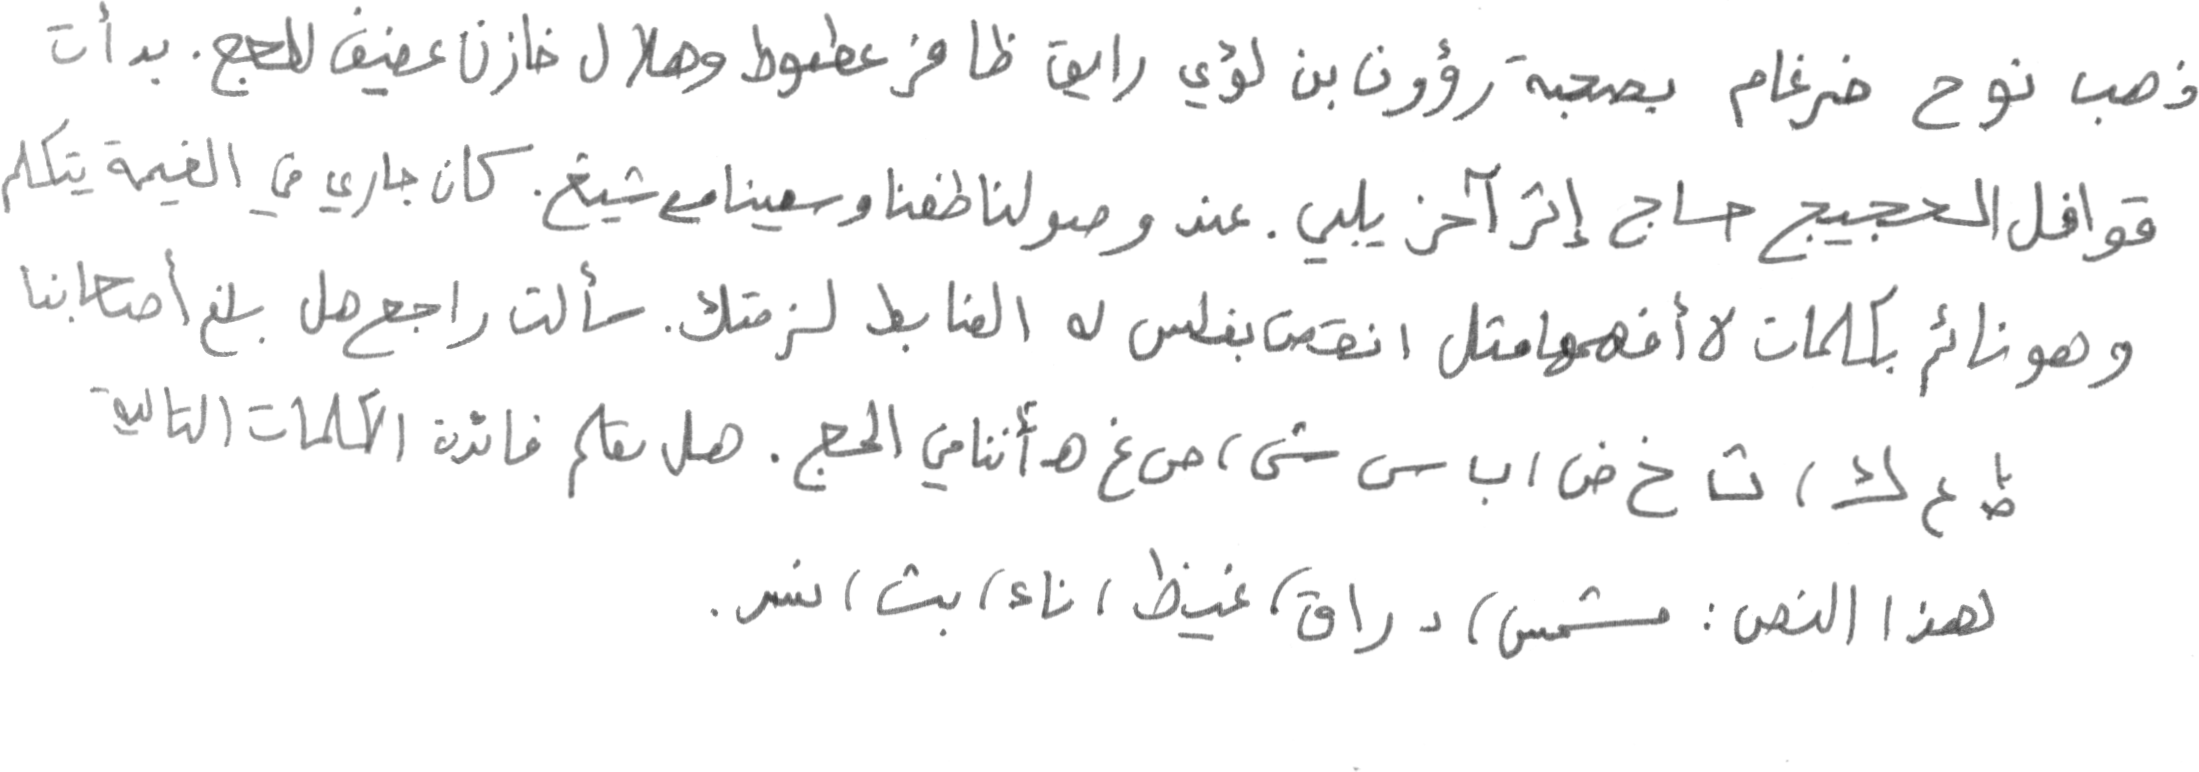 ذهب نوح ضرغام بصحبة رؤوف بن لؤي رايق ظافر عطعوط وهلال خازن عفيف للحج. بدأت
قوافل الحجيج حاج إثر آخر يلبي. عند وصولنا طفنا وسعينا مع شيخ. كان جاري في الخيمة يتكلم
وهو نائم بكلمات لا أفهمها مثل انقض بغلس له الضابط لزمتك. سألت راجع هل بلغ أصحابنا
ظ ع ك، ث خ ض، ب س ش، ص غ ه أثنا في الحج. هل تعلم فائدة الكلمات التالية
لهذا النص: مشمس، دراق، غيظ، ناء، بث، نسر.